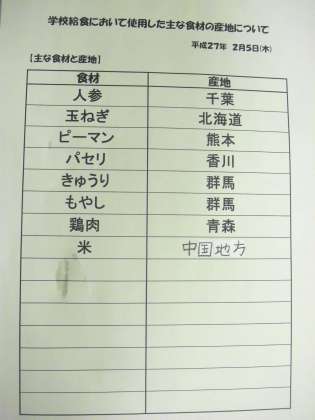 学校給食において使用した主な食材の産地について
平成27年 2月5日(木)
【主な食材と産地】
食材 産地
人参 千葉
玉ねぎ 北海道
ピーマン 熊本
パセリ 香川
きゅうり 群馬
もやし 群馬
鶏肉 青森
米 中国地方